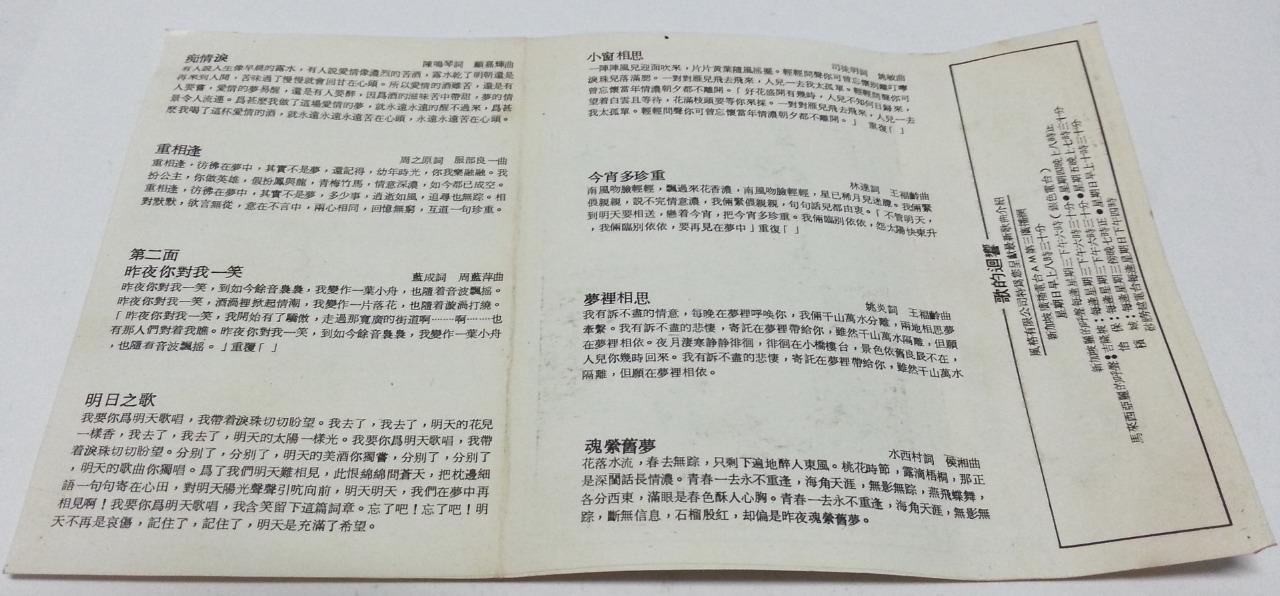 痴情淚
陳鳴琴詞　顧嘉輝曲
有人說人生像早晨的露水，有人說愛情像濃烈的苦酒，露水乾了明朝還是
再來到人間，苦味過了慢慢就會回甘在心頭。所以愛情的酒雖苦，還是有
人要嘗，愛情的夢易醒，還是有人要醉，因爲酒的滋味苦中帶甜，夢的情
景令人流連。爲甚麼我做了這場愛情的夢，就永遠永遠的醒不過來，爲甚
麼我喝了這杯愛情的酒，就永遠永遠永遠苦在心頭，永遠永遠苦在心頭。
重相逢
周之原詞　服部良一曲
重相逢，彷彿在夢中，其實不是夢，還記得，幼年時光，你我樂融融。我
扮公主，你做英雄，假扮鳳與龍，青梅竹馬，情意深濃，如今都已成空。
重相逢，彷彿在夢中，其實不是夢，多少事，過逝如風，追尋也無踪。相
對默默，欲言無從，意在不言中，兩心相同，回憶無窮，互道一句珍重。
第二面
昨夜你對我一笑
藍成詞　周藍萍曲
昨夜你對我一笑，到如今餘音裊裊，我變作一葉小舟，也隨着音波飄搖。
昨夜你對我一笑，酒渦裡掀起情潮，我變作一片落花，也隨着漩渦打繞。
「昨夜你對我一笑，我開始有了驕傲，走過那寬廣的街道啊………啊……也
有那人們對着我瞧。昨夜你對我一笑，到如今餘音裊裊，我變作一葉小舟
，也隨着音波飄搖。」重覆「」
明日之歌
我要你爲明天歌唱，我帶着淚珠切切盼望。我去了，我去了，明天的花兒
一樣香，我去了，我去了，明天的太陽一樣光。我要你爲明天歌唱，我帶
着淚珠切切盼望。分別了，分別了，明天的美酒你獨嘗，分別了，分別了
，明天的歌曲你獨唱。爲了我們明天難相見，此恨綿綿問蒼天，把枕邊細
語一句句寄在心田，對明天陽光聲聲引吭向前，明天明天，我們在夢中再
相見啊！我要你爲明天歌唱，我含笑留下這篇詞章。忘了吧！忘了吧！明
天不再是哀傷，記住了，記住了，明天是充滿了希望。
小窗相思
司徒明詞　姚敏曲
一陣陣風兒迎面吹來，片片黃葉隨風搖擺。輕輕問聲你可曾忘懷別離叮嚀
淚珠兒落滿腮。一對對雁兒飛去飛來，人兒一去我太孤單。輕輕問聲你可
曾忘懷當年情濃朝夕都不離開。「好花盛開有幾時，人兒不知何日歸來，
望着白雲且等待，花滿枝頭要等你來採。一對對雁兒飛去飛來，人兒一去
我太孤單。輕輕問聲你可曾忘懷當年情濃朝夕都不離開。」重復「」
今宵多珍重
林達詞　王福齡曲
南風吻臉輕輕，飄過來花香濃，南風吻臉輕輕，星已稀月兒迷朦。我倆緊
偎親親，說不完情意濃，我倆緊偎親親，句句話兒都由衷。「不管明天，
到明天要相送，戀着今宵，把今宵多珍重。我倆臨別依依，怨太陽快東升
，我倆臨別依依，要再見在夢中」重復「」
夢裡相思
姚炎詞　王福齡曲
我有訴不盡的情意，每晚在夢裡呼喚你，我倆千山萬水分離，兩地相思夢
牽繫。我有訴不盡的悲悽，寄託在夢裡帶給你，雖然千山萬水隔離，但願
在夢裡相依。夜月淒寒靜靜徘徊，徘徊在小橋樓台，景色依舊良辰不在，
人兒你幾時回來。我有訴不盡的悲悽，寄託在夢裡帶給你，雖然千山萬水
隔離，但願在夢裡相依。
魂縈舊夢
水西村詞　侯湘曲
花落水流，春去無踪，只剩下遍地醉人東風。桃花時節，露滴梧桐，那正
是深閨話長情濃。青春一去永不重逢，海角天涯，無影無踪，燕飛蝶舞，
各分西東，滿眼是春色酥人心胸。青春一去永不重逢，海角天涯，無影無
踪，斷無信息，石榴殷紅，却偏是昨夜魂縈舊夢。
歌的迴響
風格有限公司特爲您呈獻最新歌曲介紹
新加坡廣播電台AM第三廣播網
星期日早上八時三十分
新加坡麗的呼聲
馬來西亞麗的呼聲